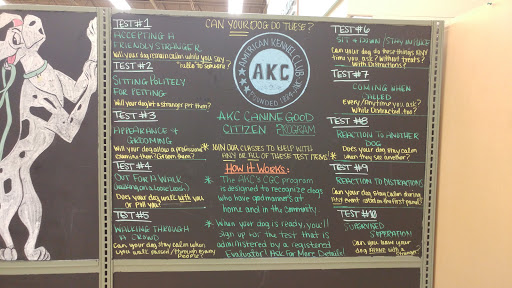 CAN YOUR DOG DO THESE?
TEST #1
ACCEPTING A
FRIENDLY STRANGER
Will your dog remain calm while you say
"hello" to someone?
TEST #2
SITTING POLITELY
FOR PETTING
Will your dog let a stranger pet them?
TEST #3
APPEARANCE +
GROOMING
Will your dog allow a professional
examine them? (Groom them?)
TEST #4
OUT FOR A WALK
(walking on a loose leash)
Does your dog walk with you
or pull you?
TEST #5
WALKING THROUGH
A CROWD
Can your dog stay calm when
you walk passed/through many
people?
AMERICAN KENNEL CLUB
AKC
FOUNDED 1884
AKC CANINE GOOD
CITIZEN PROGRAM
* JOIN OUR CLASSES TO HELP WITH
ANY OR ALL OF THESE TEST ITEMS!
How it Works:
* The AKC's CGC program
is designed to recognize dogs
who have good manners at
home and in the community.
* When your dog is ready, you'll
sign up for the test that is
administered by a registered
Evaluator! Ask For More Details!
TEST #6
SIT + DOWN / STAY IN PLACE
Can your dog do these things ANY
time you ask? Without treats?
With Distractions?
TEST #7
COMING WHEN
CALLED
Every/Anytime you ask?
While Distracted too?
TEST #8
REACTION TO ANOTHER
DOG
Does your dog stay calm
when they see another?
TEST #9
REACTION TO DISTRACTIONS
Can your dog stay calm during
any
TEST #10
SUPERVISED
SEPERATION
Can you leave your
dog ALONE with a
Stranger?